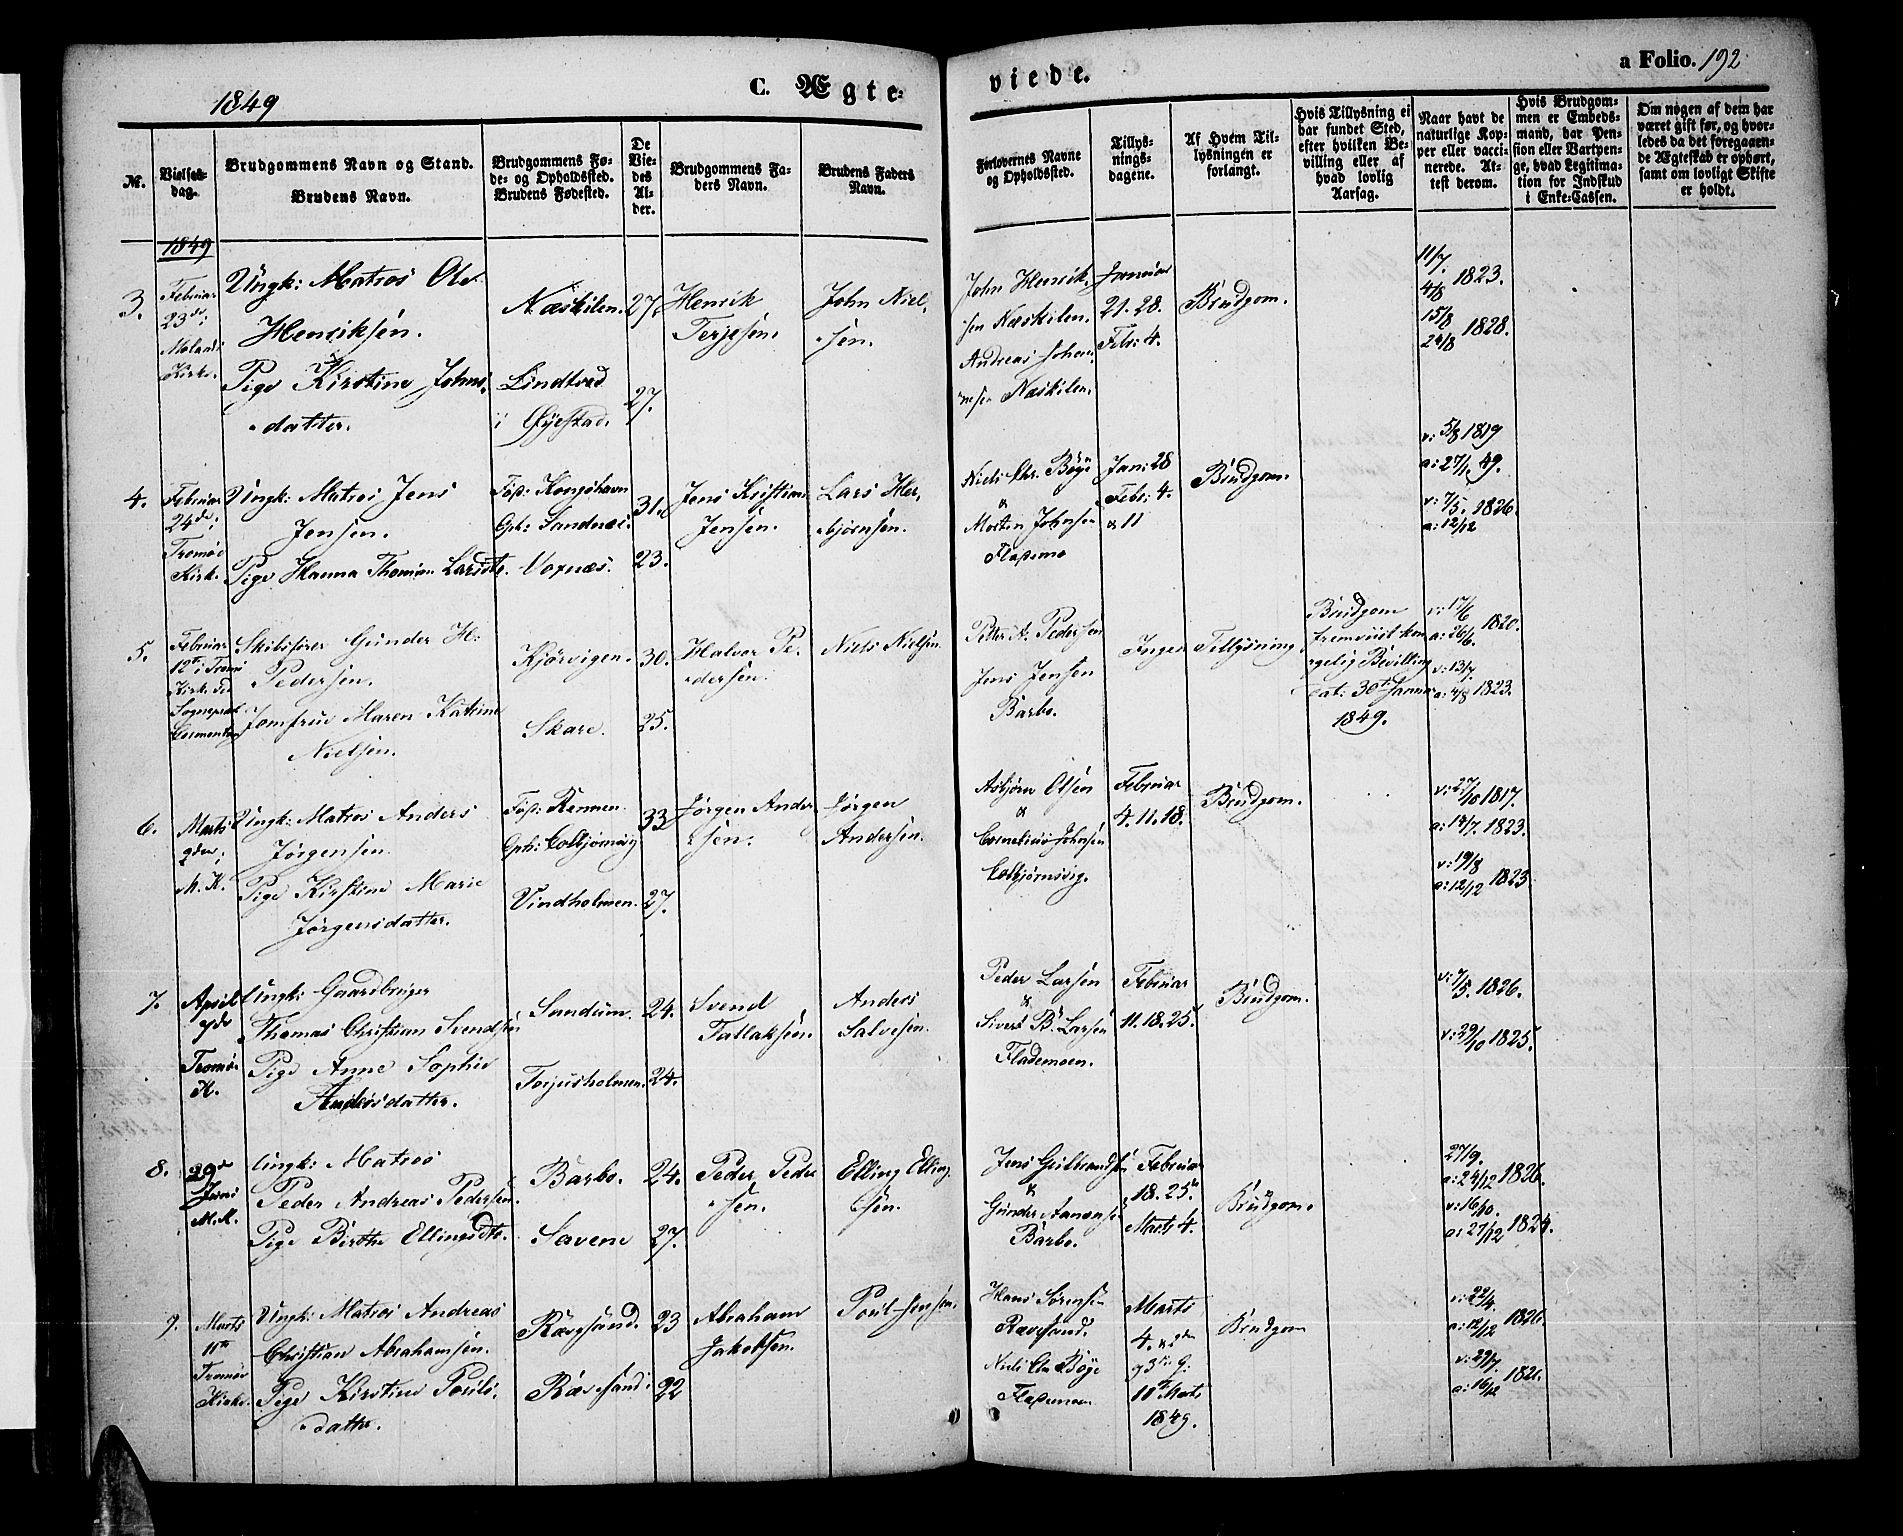 1849
C. Ægte-
viede.
a Folio. 192
№.
Vielses-
dag.
Brudgommens Navn og Stand.
Brudens Navn.
Brudgommens Fø-
de- og Opholdssted.
Brudens Fødested.
De
Vie-
des
Al-
der.
Brudgommens Fa-
ders Navn.
Brudens Faders
Navn.
Forlovernes Navne
og Opholdssted.
Tillys-
nings-
dagene.
Af Hvem Til-
lysningen er
forlangt.
Hvis Tillysning ei
har fundet Sted,
efter hvilken Be-
villing eller af
hvad lovlig
Aarsag.
Naar havt de
naturlige Kop-
per eller vacci-
nerede. At-
test derom.
Hvis Brudgom-
men er Embeds-
mand, har Pen-
sion eller Vartpen-
ge, hvad Legitima-
tion for Indskud
i Enke-Cassen.
Om nogen af dem har
været gift før, og hvor-
ledes da det foregaaen-
de Ægteskab er ophørt,
samt om lovligt Skifte
er holdt.
1849
3.
Februar
23de;
Molands
Kirke.
Ungk: Matros Ole
Henriksen.
Pige Kirstine Johns-
datter.
Næskilen.
Lindtved
i Øyestad.
27.
27.
Henrik
Terjesen.
John Niel-
sen.
John Henrik-
sen Næskilen.
Andreas Johan-
nesen Næskilen.
Januar
21. 28.
Febr: 4.
Brudgom.
11/7
4/8 1823.
15/8
24/8 1828.
4.
Februar
24de;
Tromø
Kirke
Ungk: Matros Jens
Jensen.
Pige Hanna Thomine Larsdtr.
Føs: Kongshavn
Oph: Sandnæs.
Voxnæs.
31.
23.
Jens Kristian
Jensen.
Lars Her-
bjørnsen.
Niels Chr. Bøye
&
Morten Johnsen
Flademo
Jan: 28
Febr: 4.
& 11
Brudgom.
v: 5/8 1819
a: 27/1 49.
v: 7/5. 1826.
a: 12/12
5.
Februar
12te i Tromø
Kirke ved
Sogneprest
Skibsfører Gunder H.
Pedersen.
Jomfrue Maren Katrine
Nielsen.
Kjørvigen.
Skare.
30.
25.
Halvor Pe-
dersen.
Niels Nielsen
Petter A. Pedersen
Jens Jensen
Barbo.
Ingen Tillysning
Brudgom
fremviist kon
gelig Bevilling
dat: 30te Januar
1849.
v: 17/6
a: 26/6 1820.
v: 13/7
a: 4/8 1823.
6.
Marts
2den;
M. K.
Ungk: Matros Anders
Jørgensen
Pige Kirstine Marie
Jørgensdatter.
Føs: Rennen
Oph: Colbjørnsvig
Vindholmen.
33
27.
Jørgen Ander
sen.
Jørgen
Andersen.
Asbjørn Olsen
&
Cornelius Johnsen
Colbjørnsvig.
Februar
4. 11. 18.
Brudgom.
v: 27/10 1817.
a: 14/7. 1823.
v: 19/8
a: 12/12 1823.
7.
April
7de
Tromø
K.
Ungk: Gaardbruger
Thomas Christian Svendsen
Pige Anne Sophie
Andersdatter.
Sandum.
Torjusholmen.
24.
24.
Svend
Tallaksen.
Anders
Salvesen.
Peder Larsen
&
Sivert B. Larsen
Flademoen.
Februar
11. 18. 25.
Brudgom.
v: 7/5. 1826.
v: 29/10 1825.
8.
29de
Juni
M. K.
Ungk: Matros
Peder Andreas Pedersen.
Pige Birthe Ellingsdtr.
Barbo.
Savene
24.
27.
Peder Peder
sen.
Elling Elling
sen.
Jens Gulbrandsen
&
Gunder Aanonsen
Barbo.
Februar
18. 25
Marts 4.
Brudgom.
27/9.
a: 24/12 1826.
v: 16/10.
a: 27/12 1824.
9.
Marts
11te
Tromø
Kirke.
Ungk: Matros Andreas
Christian Abrahamsen.
Pige Kirstine Pouls-
datter.
Rævesand.
Rævesand.
23
22
Abraham
Jakobsen.
Poul Jensen.
Hans Sørensen
Rævesand.
Niels Chr Bøye
Flademoen
Marts
4.
11te Marts
1849.
Brudgom
v: 22/4.
a: 12/12 1826.
v: 29/7.
a: 16/12 1826.